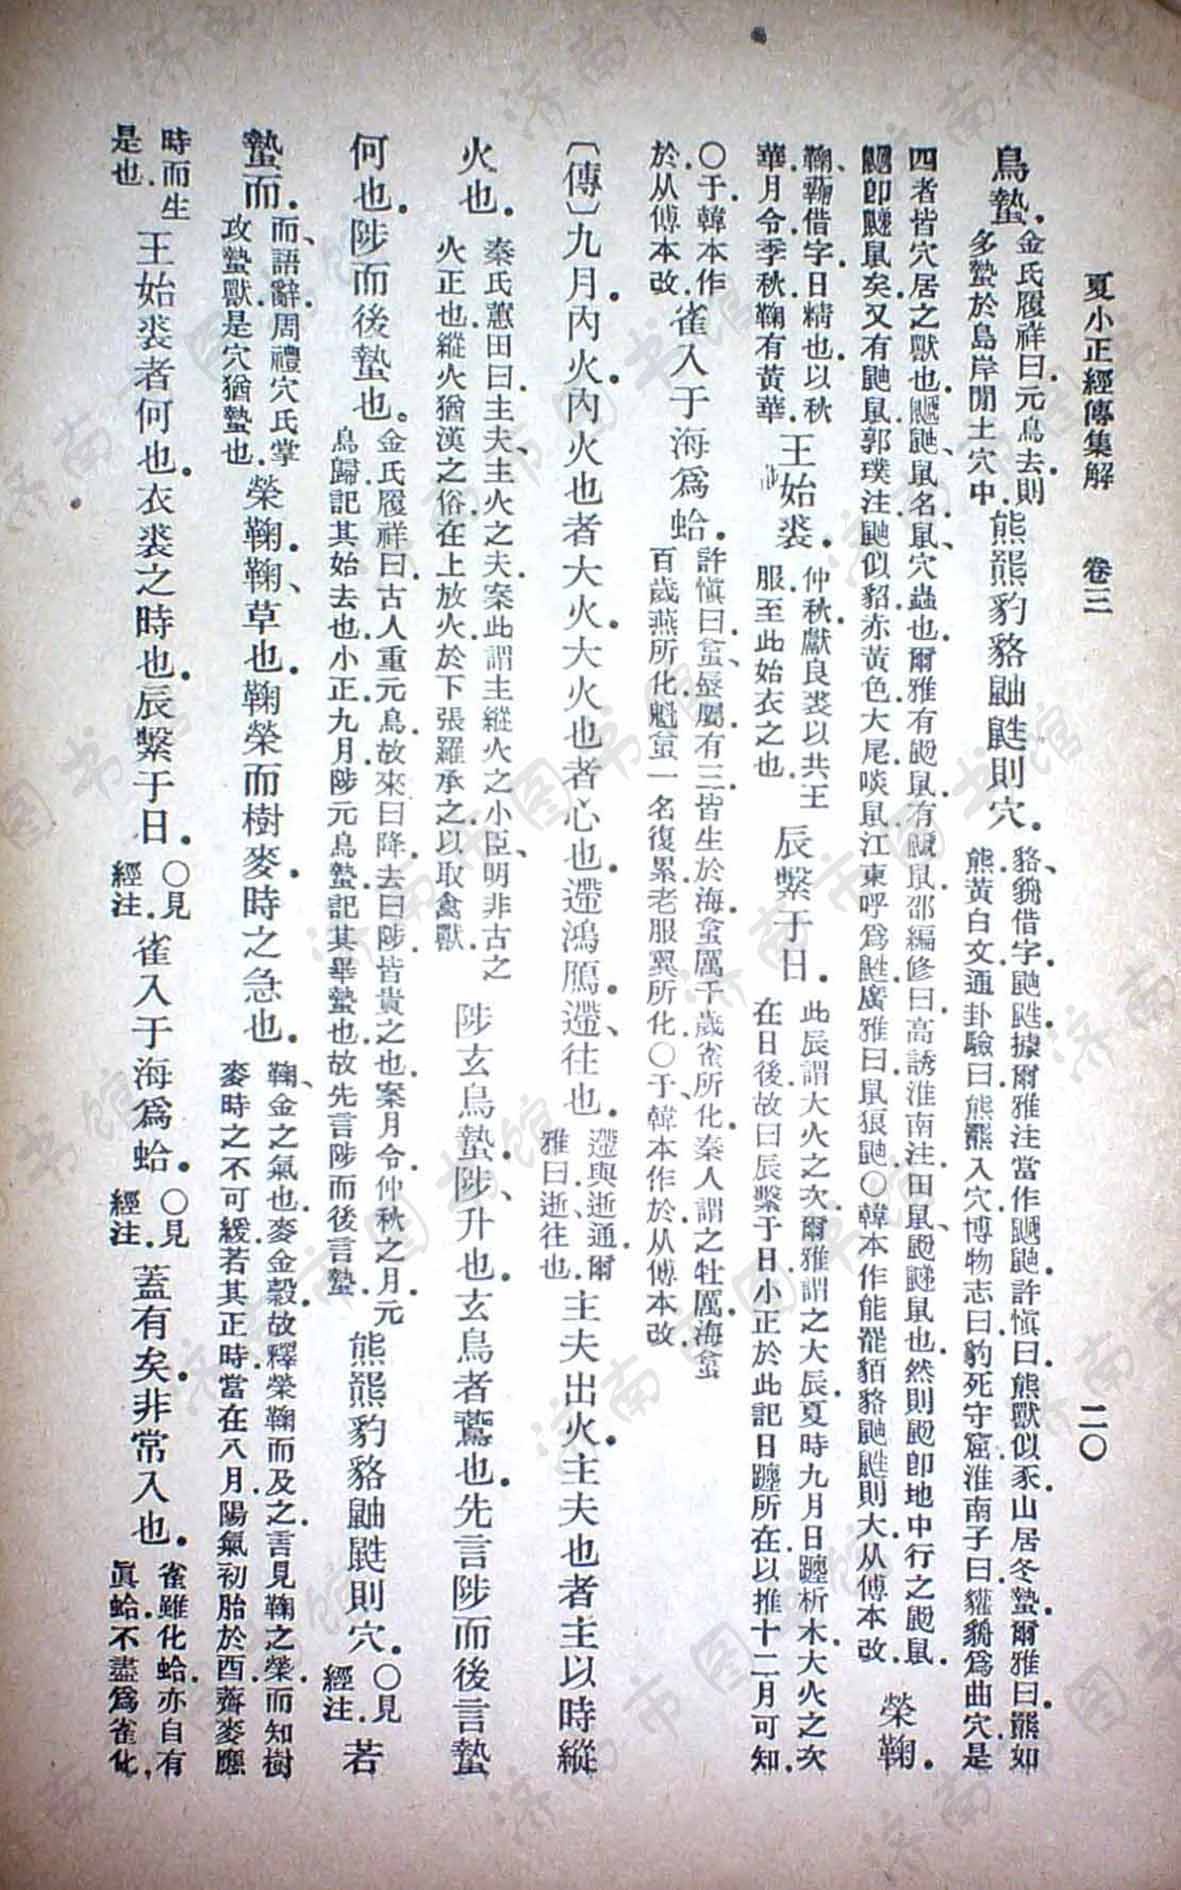 夏小正經傳集解　卷三　二〇
鳥蟄。金氏履祥曰元鳥去則
多蟄於島岸閒土穴中。熊羆豹貉鼬鼪則穴。貉、貈借字鼬鼪據爾雅注當作鼬許愼曰熊獸似豕山居冬蟄爾雅曰羆如
熊黃白文通卦驗曰熊羆入穴博物志曰豹死守窟淮南子曰貛貈爲曲穴是
四者皆穴居之獸也鼠名鼠穴蟲也爾雅有鼢鼠有鼠邵編修曰高誘淮南注田鼠鼢鼠也然則鼢卽地中行之鼢鼠
卽鼠矣又有鼬鼠郭璞注鼬似貂赤黃色大尾啖鼠江東呼爲鼪廣雅曰鼠狼鼬〇韓本作能罷貊貉鼬鼪則大从傅本改。榮鞠。
鞠、蘜借字日精也以秋
華月令季秋鞠有黃華。王始裘。仲秋獻良裘以共王
服至此始衣之也。辰繫于日。此辰謂大火之次爾雅謂之大辰夏時九月日躔析木大火之次
在日後故曰辰繫于日小正於此記日躔所在以推十二月可知。
〇于韓本作
於从傅本改。雀入于海爲蛤。許愼曰蜃屬有三皆生於海厲千歲雀所化秦人謂之牡厲海
百歲燕所化魁一名復累老服翼所化〇于韓本作於从傅本改。
〔傳〕九月內火內火也者大火大火也者心也遰鴻鴈遰往也。遰與逝通爾
雅曰逝往也。主夫出火主夫也者主以時縱
火也。秦氏蕙田曰主夫主火之夫案此謂主縱火之小臣明非古之
火正也縱火猶漢之俗在上放火於下張羅承之以取禽獸。陟玄鳥蟄陟升也玄鳥者鷰也先言陟而後言蟄
何也陟而後蟄也。金氏履祥曰古人重元鳥故來曰降去曰陟皆貴之也案月令仲秋之月元
鳥歸記其始去也小正九月陟元鳥蟄記其畢蟄也故先言陟而後言蟄。熊羆豹貉鼬鼪則穴。〇見
經注。若
蟄而。而語辭周禮穴氏掌
攻蟄獸是穴猶蟄也。榮鞠鞠草也鞠榮而樹麥時之急也。鞠金之氣也麥金穀故釋榮鞠而及之言見鞠之榮而知樹
麥時之不可緩若其正時當在八月陽氣初胎於酉薺麥應
時而生
是也。王始裘者何也衣裘之時也辰繫于日。〇見
經注。雀入于海爲蛤。〇見
經注。蓋有矣非常入也。雀雖化蛤亦自有
眞蛤不盡爲雀化。